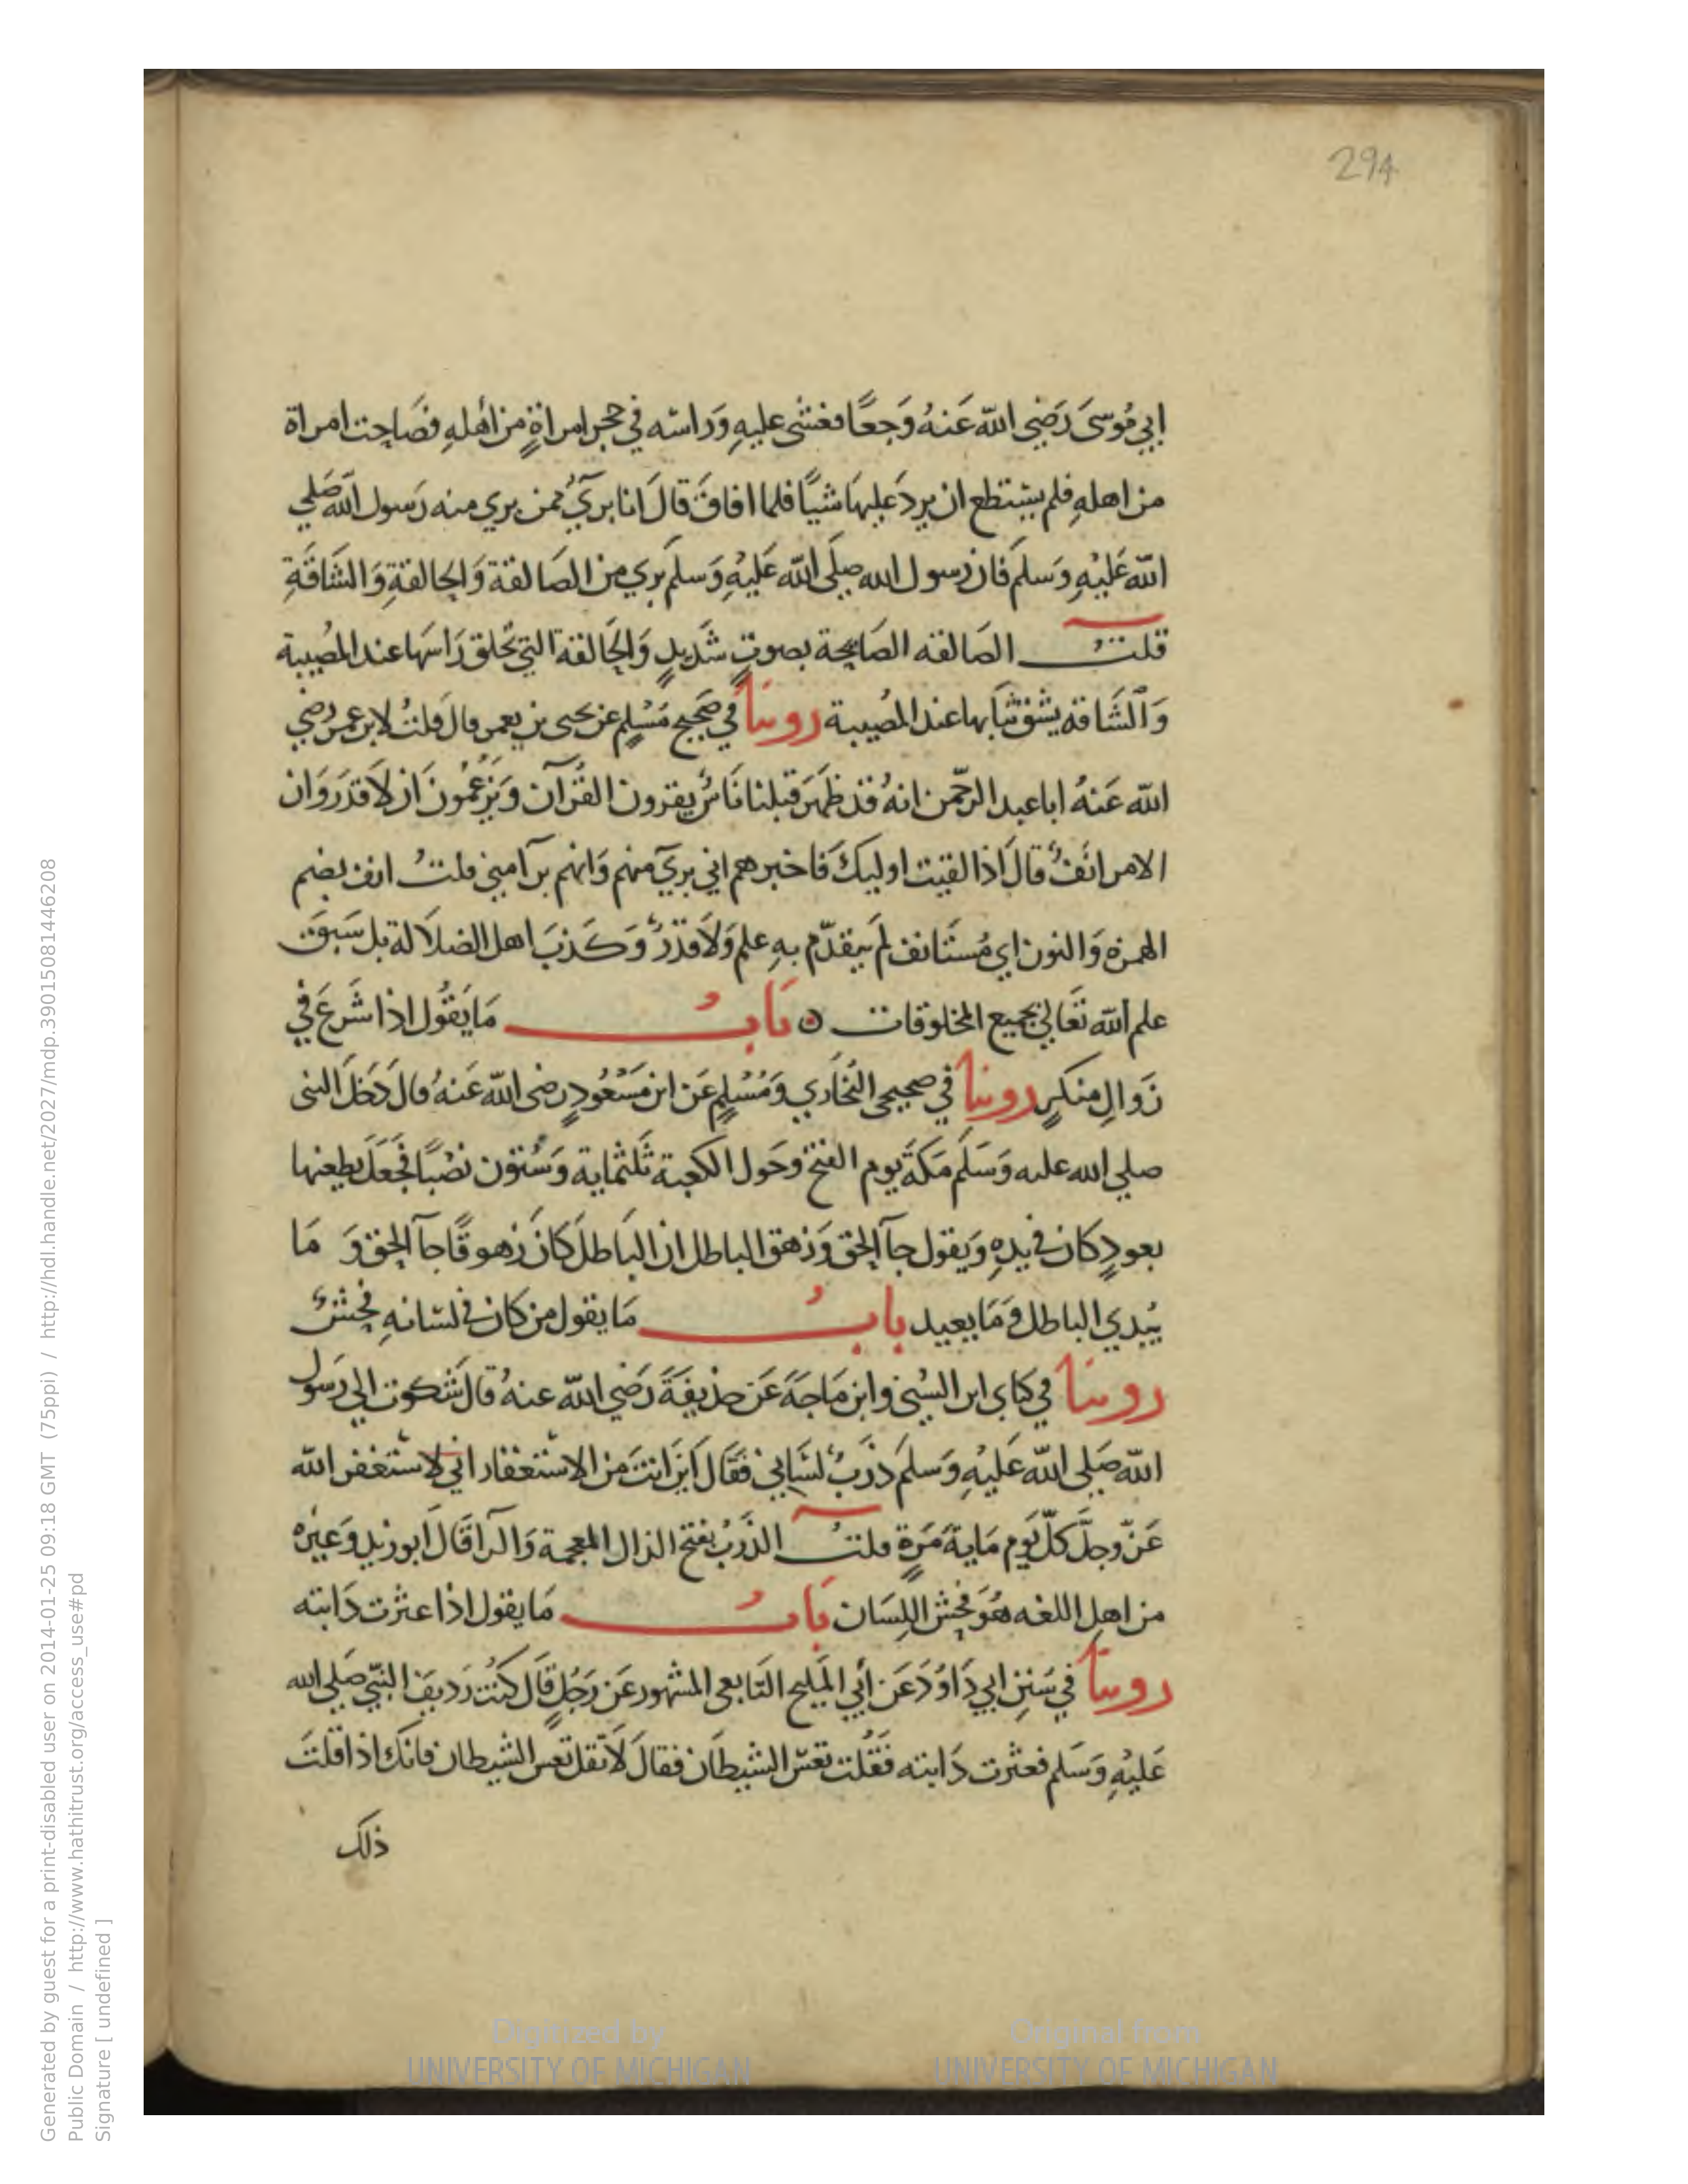 294
ابي مُوسَى رَضِي اللّه عَنهُ وَجعًا فغشى عليهِ وَراسه في حجر امراةٍ من أهلهِ فصَاحت امراة
من اهلهِ فلم يستطع ان يردَ عليهَا شيًا فلما افاقَ قالَ انا بريٓ ممن بري منه رَسول اللّه صَلي
اللّه عَليْهِ وَسلم فان رَسول الله صلي اللّه عَليْهِ وَسلم بري من الصَالقة وَالحالقةِ وَالشَاقةِ
قلتُ الصَالقه الصَايحة بصوتٍ شَديدٍ وَالحَالقة التي تحلق رَاسهَا عند المصُيبة
وَالشَاقه يشق ثيَابها عند المصُيبة روينا في صَحيح مسْلمٍ عن يحيى بن يعمر قال قلتُ لابن عمر رضي
اللّه عَنهُ ابا عبد الرحّمن انهُ قد ظهَرَ قبلنا نَاسٌ يقرون القُرآن وَيزعُمُون اَن لاَ قدَرَ وَان
الامر انُفٌ قالَ اذا لقيت اوليكَ فَاخبرهم اني بريٓ منهم وَانهم بَرآ مني قلتُ انف بضم
الهمزه وَالنون اي مُستَانف لم يتقدّم بهِ علم وَلاَ قدَرٌ وَكذبَ اهل الضلاَلة بل سَبقَ
علم اللّه تعَالي بجميع المخلوقات ٥ بَابُ مَا يَقُول اذا شَرعَ في
زَوالِ منكرٍ روينا في صحيحي البُخاري وَمُسْلمٍ عَن ابن مسَعُودٍ رضى اللّه عَنهُ قال دَخَلَ النبى
صلي الله عليه وَسَلم مَكةَ يوم الفتح وحَول الكعبة ثلَثماية وَستون نصُبًا فجَعَلَ يطعنها
بعودٍ كان في يدهِ وَيقول جآ الحق وَزهق الباطل ان البَاطلَ كانَ زهوقًا جآ الحق وَ مَا
يُبدي الباطل وَمَا يعيد بابُ مَا يقول من كان في لسَانهِ فحُشٌ
روينا في كتابي ابن السُني وابن مَاجَهَ عَن حذيفةَ رَضي اللّه عنهُ قالَ شكوت الي رَسول
اللّه صَلي اللّه عَليْهِ وَسلمَ ذرَبَ لسَاني فقَال اَين انتَ من الاستغفار اني لاستغفر اللّه
عَزّ وجلَّ كلّ يَوم مَايةَ مَرةٍ قلتُ الذرَبُ بفتح الذال المعجمة وَالرا قَالَ ابو زيد وَغيره
من اهل اللغه هُوَ فحش اللِسَان بَابُ مَا يقول اذا عثرت دَابته
روينا في سَننِ ابي دَاوُدَ عَن أبي المَليح التَابعي المشهور عَن رَجُلٍ قال كُنت رَديفَ النَبيّ صَلي الله
عَليْهِ وَسَلم فعثرت دَابته فَقُلت تعسَ الشيطَان فقالَ لاَ تقل تعس الشيطان فانكَ اذا قلتَ
ذلك
Generated by guest for a print-disabled user on 2014-01-25 09:18 GMT (75ppi) / http://hdl.handle.net/2027/mdp.39015081446208
Public Domain / http://www.hathitrust.org/access_use#pd
Signature [ undefined ]
Digitized by UNIVERSITY OF MICHIGAN
Original from UNIVERSITY OF MICHIGAN